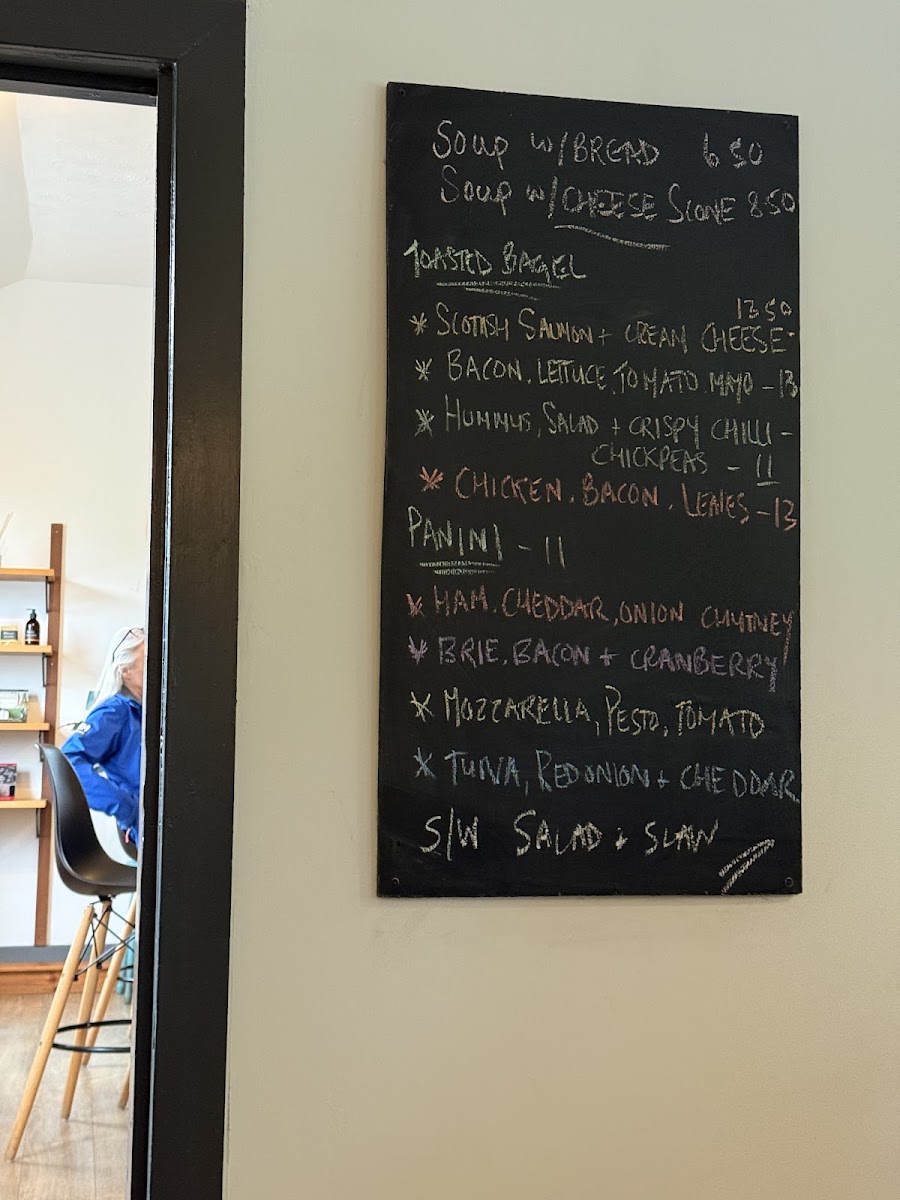 Soup w/BREAD 6 50
Soup w/CHEESE SCONE 8 50
TOASTED BAGEL
13 50
* SCOTTISH SALMON + CREAM CHEESE-
* BACON, LETTUCE, TOMATO MAYO - 13
* HUMMUS, SALAD + CRISPY CHILLI -
CHICKPEAS - 11
* CHICKEN, BACON, LEAVES - 13
PANINI - 11
* HAM, CHEDDAR, ONION CHUTNEY
* BRIE, BACON + CRANBERRY
* MOZZARELLA, PESTO, TOMATO
* TUNA, RED ONION + CHEDDAR
S/W SALAD + SLAW